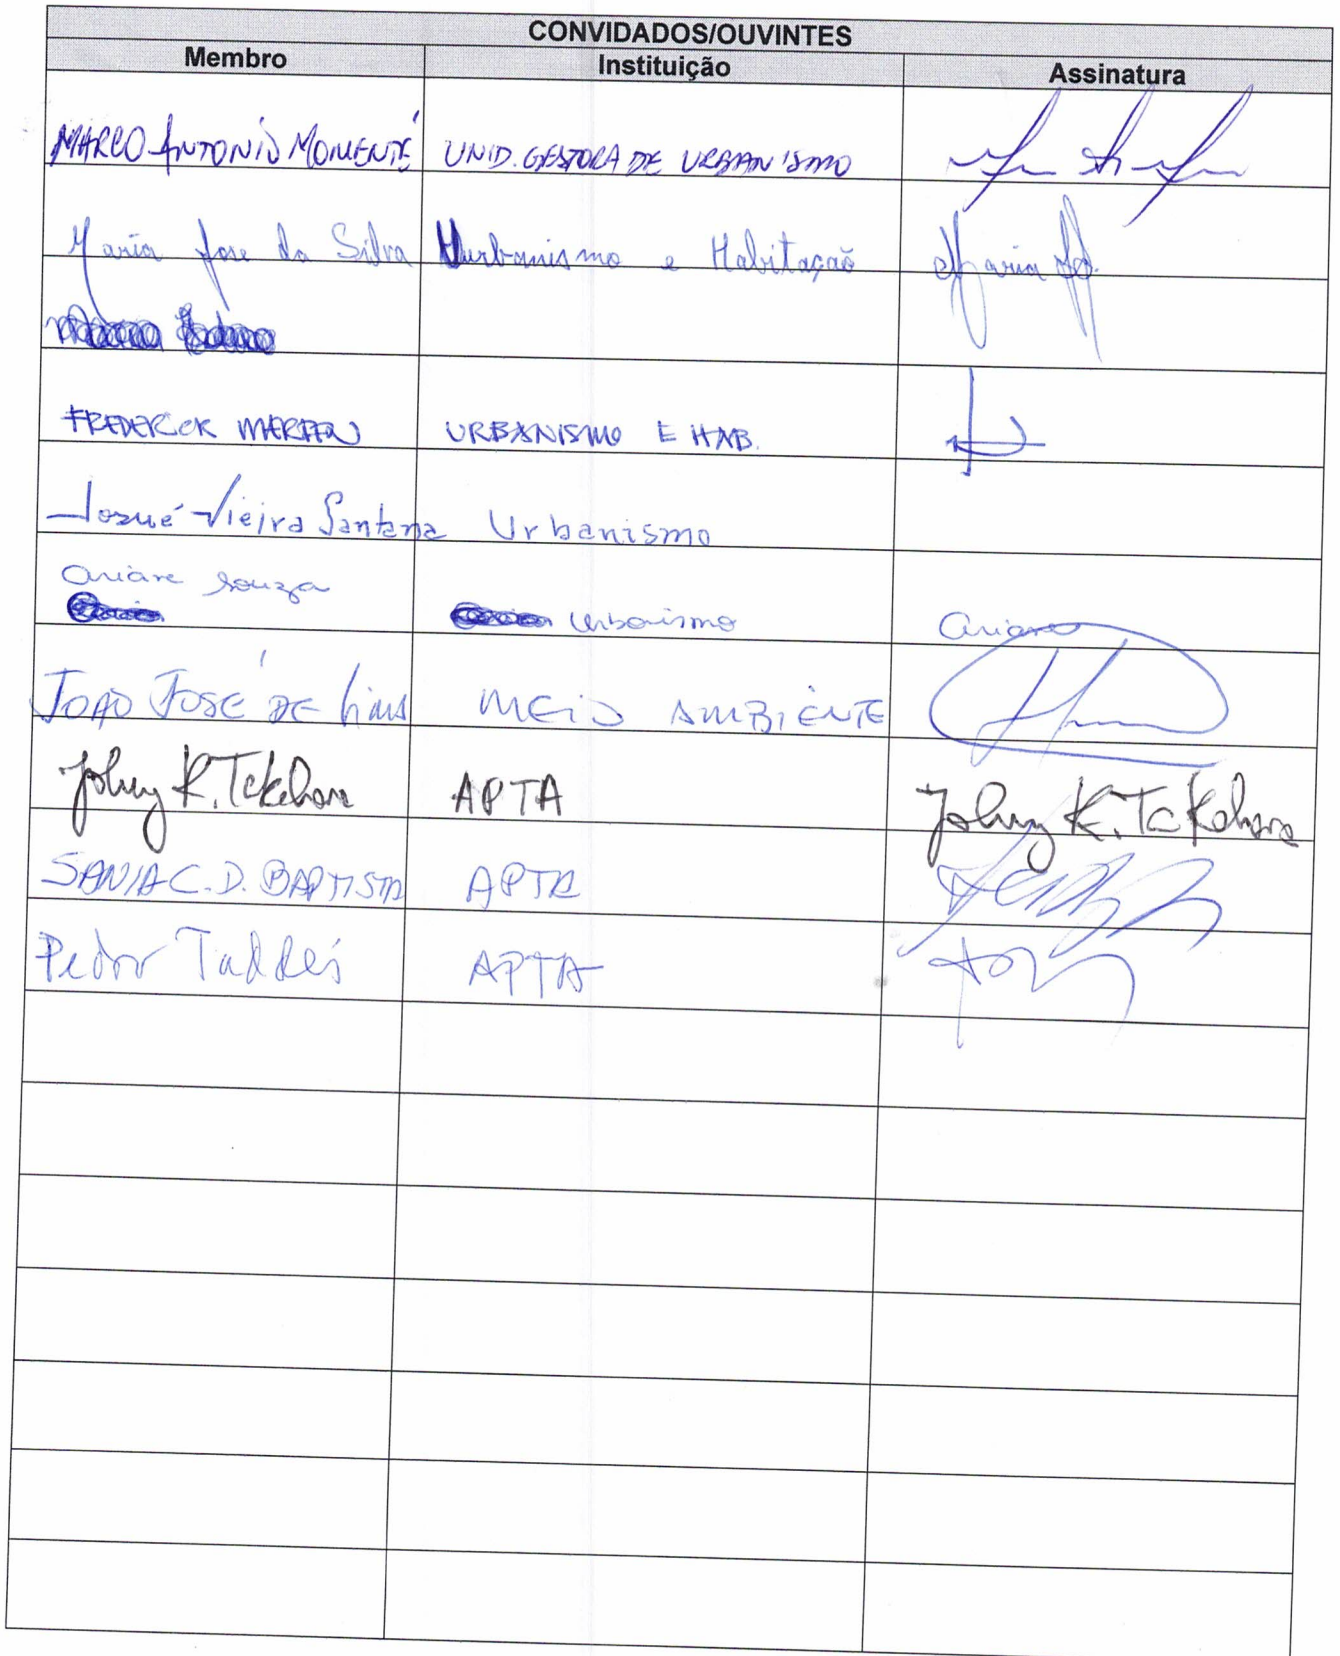 CONVIDADOS/OUVINTES
Membro Instituição Assinatura
MARCO ANTONIO MOMENTÉ UNID. GESTORA DE URBANISMO
Maria Jose da Silva Urbanismo e Habitação Maria
FREDERICK URBANISMO E HAB.
Josué Vieira Santana Urbanismo
Ariane Souza
Urbanismo Ariane
JOAO JOSÉ DE MEIO AMBIENTE
Johny K. Takehara APTA Johny K. Takehara
SANIA C. D. BAPTISTA APTA
Pedro Taddei APTA